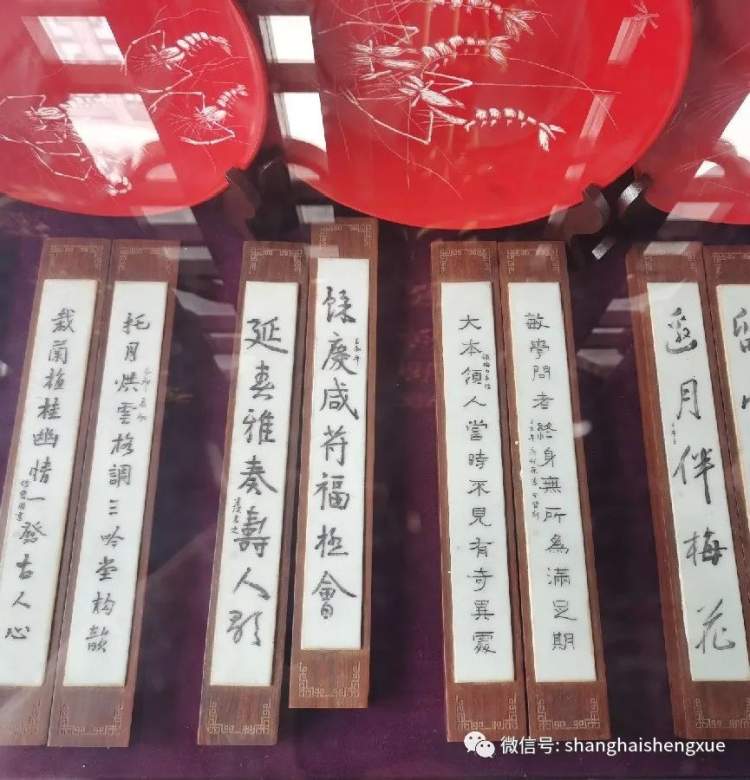 邀月伴梅花
敏學問者終身無所為滿足期
大本領人當時不見有奇異處
餘慶咸符福極會
延春雅奏壽人歌
托月洪雲格調三吟堂构
栽蘭植桂幽情一發古人心
微信号: shanghaishengxue